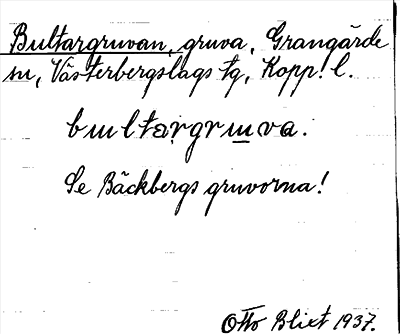 Bultargruvan, gruva, Grangärde
sn, Västerbergslags tg, Kopp. l.
bultargruva.
Se Bäckbergs gruvorna!
Otto Blixt 1937.